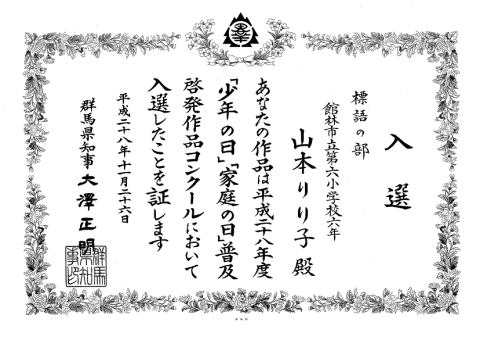 入選
標語の部
館林市立第六小学校六年
山本りり子 殿
あなたの作品は平成二十八年度
「少年の日」「家庭の日」普及
啓発作品コンクールにおいて
入選したことを証します
平成二十八年十一月二十六日
群馬県知事 大澤正明
群馬
県知
事印